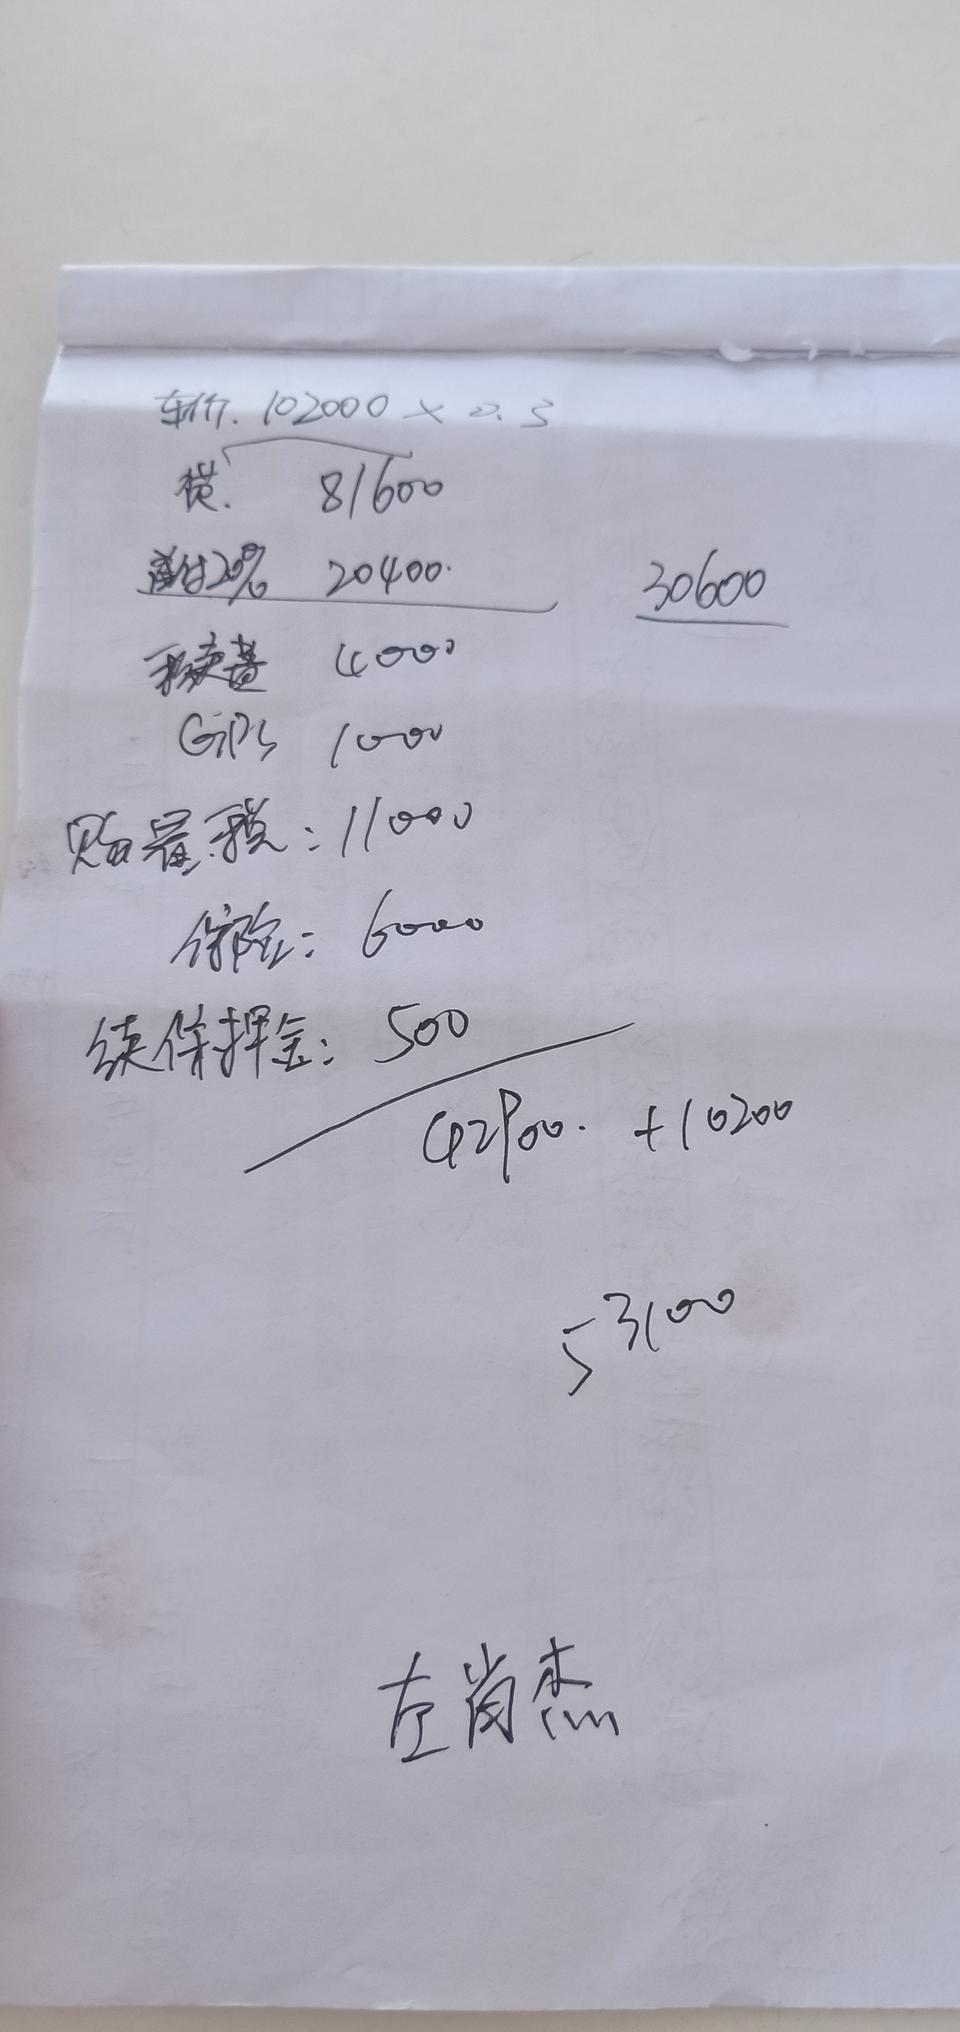 车价. 102000 × 0.3
贷. 81600
首付20% 20400. 30600
手续费 4000
GPS 1000
购置税: 11000
保险: 6000
续保押金: 500
42900. +10200
53100
左肖杰